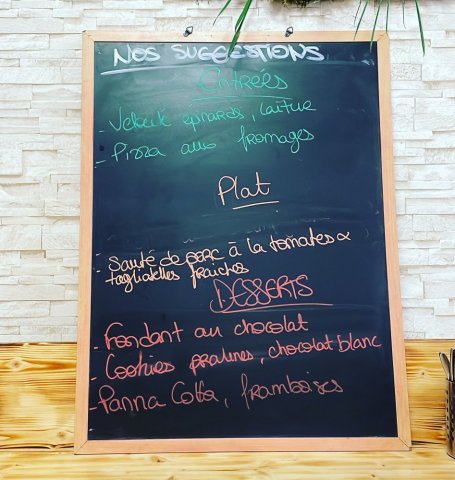 NOS SUGGESTIONS
Entrées
- Velouté épinards, laitue
- Pizza aux fromages
Plat
- Sauté de porc à la tomates &
tagliatelles fraiches
DESSERTS
- Fondant au chocolat
- Cookies pralines, chocolat blanc
- Panna Cotta, framboises